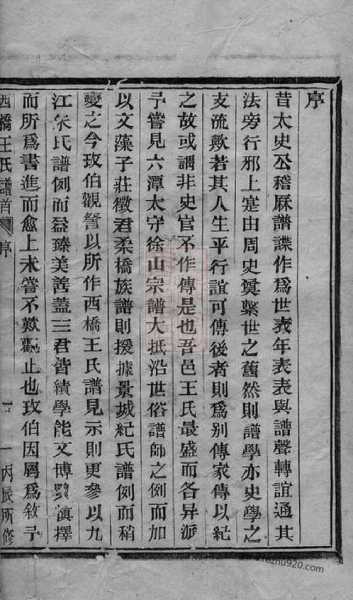 序
昔太史公稽厤譜諜作爲世表年表表與譜聲轉誼通其
法旁行邪上寔由周史奠繫世之舊然則譜學亦史學之
支流歟若其人生平行誼可傳後者則爲別傳家傳以紀
之故或謂非史官不作傳是也吾邑王氏最盛而各异派
予嘗見六潭太守徐山宗譜大抵沿世俗譜師之例而加
以文藻子莊徵君柔橋族譜則援據景城紀氏譜例而稍
變之今玫伯觀詧以所作西橋王氏譜見示則更參以九
江朱氏譜例而益臻美善蓋三君皆績學能文博贍愼擇
而所爲書進而愈上未嘗不歎觀止也玫伯因屬爲敘予
西橋王氏譜首 序 一 丙辰所修
dfz9.com 家谱资料www.zupu920.com